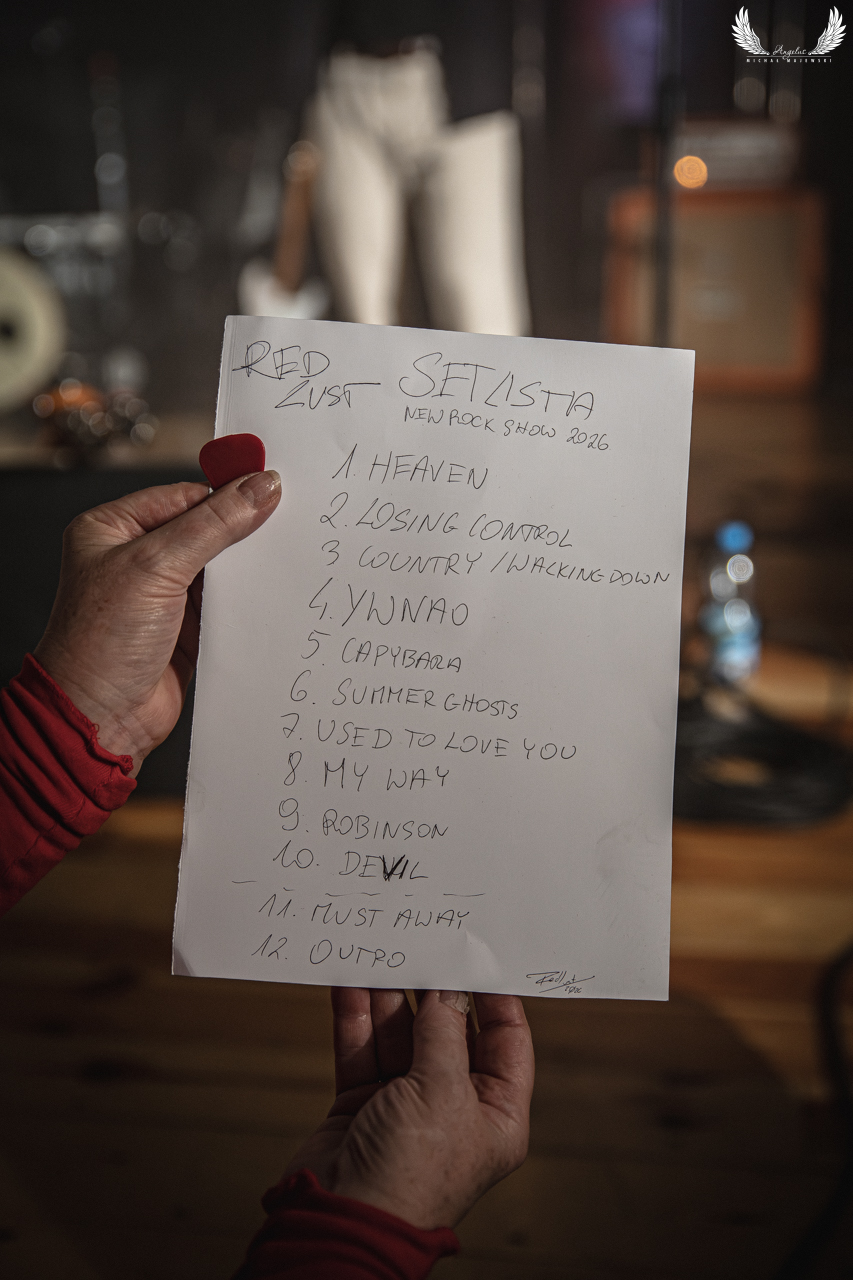 Angelus
MICHAŁ MAJEWSKI
RED LUST
SETLISTA
NEW ROCK SHOW 2026
1. HEAVEN
2. LOSING CONTROL
3 COUNTRY / WALKING DOWN
4. YWNAO
5. CAPYBARA
6. SUMMER GHOSTS
7. USED TO LOVE YOU
8. MY WAY
9. ROBINSON
10. DEVIL
11. MUST AWAY
12. OUTRO
Redlust
2026